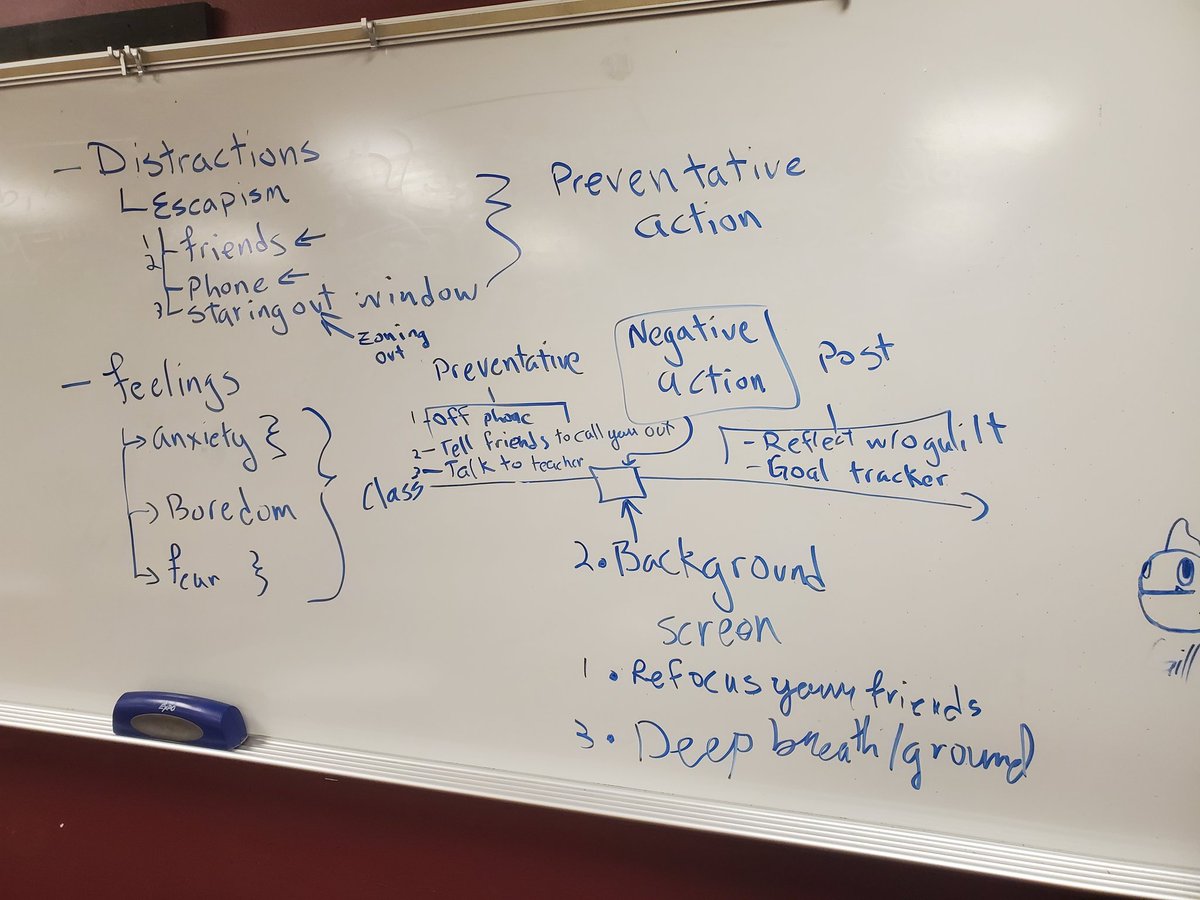 - Distractions
Escapism
1 friends
2
Phone
3 staring out window
zoning
out
Preventative
action
- feelings
anxiety
Boredom
fear
Preventative
1 - off phone
2 - Tell friends to call you out
3 - Talk to teacher
Class
Negative
action
Post
- Reflect w/o guilt
- Goal tracker
2. Background
screen
1. Refocus your friends
3. Deep breath/ground
Expo